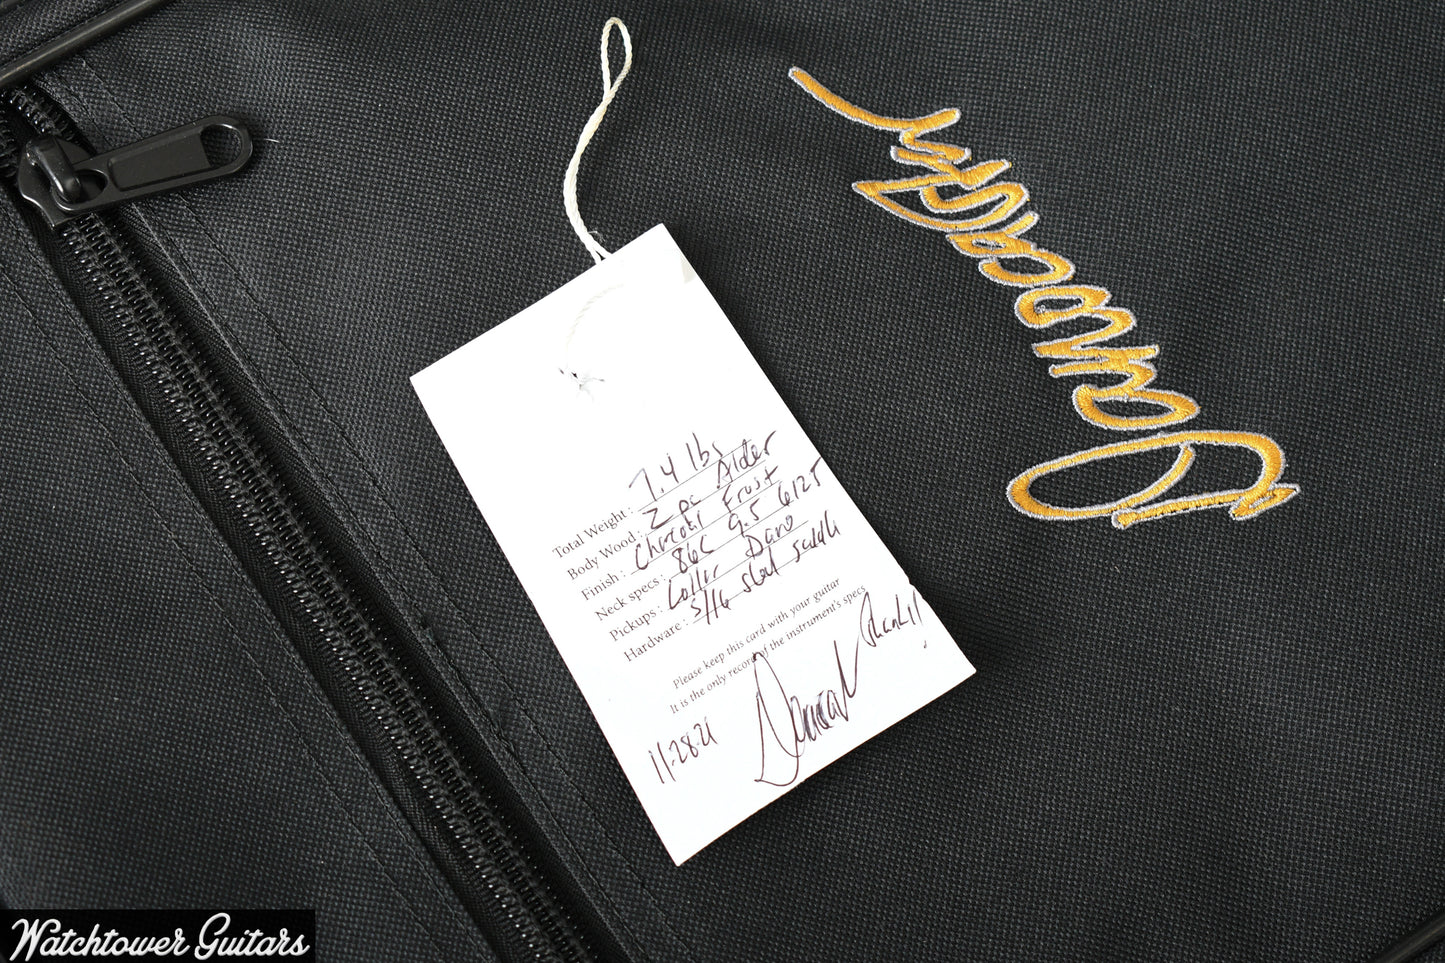 Danocaster
Total Weight: 7.4 lbs
Body Wood: 2 pc Alder
Finish: Charcoal Frost
Neck specs: 86C 9.5 6125
Pickups: Lollar Dano
Hardware: 5/16 steel saddle
Please keep this card with your guitar
It is the only record of the instrument's specs
11.28.21
Thank!!
Watchtower Guitars